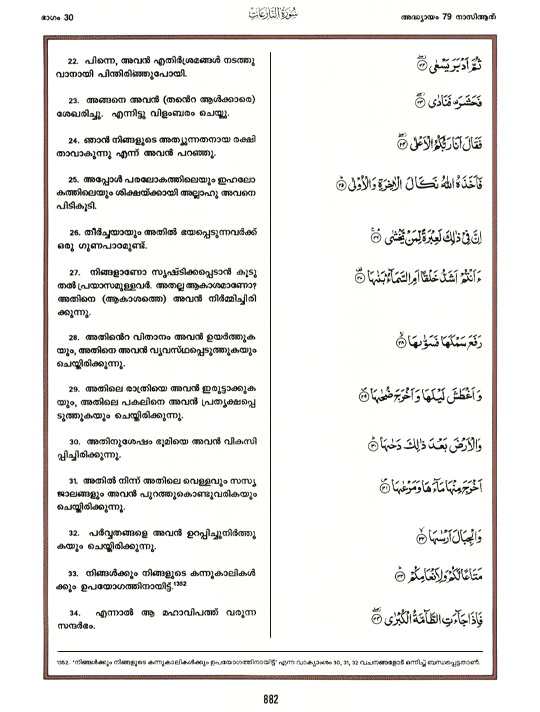 ഭാഗം 30
سُورَةُ النَّازِعَات
അദ്ധ്യായം 79 നാസിആത്
22. പിന്നെ, അവൻ എതിർശ്രമങ്ങൾ നടത്തു
വാനായി പിന്തിരിഞ്ഞുപോയി.
ثُمَّ أَدْبَرَ يَسْعَىٰ ﴿٢٢﴾
23. അങ്ങനെ അവൻ (തന്റെ ആൾക്കാരെ)
ശേഖരിച്ചു. എന്നിട്ടു വിളംബരം ചെയ്തു.
فَحَشَرَ فَنَادَىٰ ﴿٢٣﴾
24. ഞാൻ നിങ്ങളുടെ അത്യുന്നതനായ രക്ഷി
താവാകുന്നു എന്ന് അവൻ പറഞ്ഞു.
فَقَالَ أَنَا رَبُّكُمُ الْأَعْلَىٰ ﴿٢٤﴾
25. അപ്പോൾ പരലോകത്തിലെയും ഇഹലോ
കത്തിലെയും ശിക്ഷയ്ക്കായി അല്ലാഹു അവനെ
പിടികൂടി.
فَأَخَذَهُ اللَّهُ نَكَالَ الْآخِرَةِ وَالْأُولَىٰ ﴿٢٥﴾
26. തീർച്ചയായും അതിൽ ഭയപ്പെടുന്നവർക്ക്
ഒരു ഗുണപാഠമുണ്ട്.
إِنَّ فِي ذَٰلِكَ لَعِبْرَةً لِّمَن يَخْشَىٰ ﴿٢٦﴾
27. നിങ്ങളാണോ സൃഷ്ടിക്കപ്പെടാൻ കൂടു
തൽ പ്രയാസമുള്ളവർ. അതല്ല ആകാശമാണോ?
അതിനെ (ആകാശത്തെ) അവൻ നിർമ്മിച്ചിരി
ക്കുന്നു.
ءَأَنتُمْ أَشَدُّ خَلْقًا أَمِ السَّمَاءُ بَنَاهَا ﴿٢٧﴾
28. അതിന്റെ വിതാനം അവൻ ഉയർത്തുക
യും, അതിനെ അവൻ വ്യവസ്ഥപ്പെടുത്തുകയും
ചെയ്തിരിക്കുന്നു.
رَفَعَ سَمْكَهَا فَسَوَّاهَا ﴿٢٨﴾
29. അതിലെ രാത്രിയെ അവൻ ഇരുട്ടാക്കുക
യും, അതിലെ പകലിനെ അവൻ പ്രത്യക്ഷപ്പെ
ടുത്തുകയും ചെയ്തിരിക്കുന്നു.
وَأَغْطَشَ لَيْلَهَا وَأَخْرَجَ ضُحَاهَا ﴿٢٩﴾
30. അതിനുശേഷം ഭൂമിയെ അവൻ വികസി
പ്പിച്ചിരിക്കുന്നു.
وَالْأَرْضَ بَعْدَ ذَٰلِكَ دَحَاهَا ﴿٣٠﴾
31. അതിൽ നിന്ന് അതിലെ വെള്ളവും സസ്യ
ജാലങ്ങളും അവൻ പുറത്തുകൊണ്ടുവരികയും
ചെയ്തിരിക്കുന്നു.
أَخْرَجَ مِنْهَا مَاءَهَا وَمَرْعَاهَا ﴿٣١﴾
32. പർവ്വതങ്ങളെ അവൻ ഉറപ്പിച്ചുനിർത്തു
കയും ചെയ്തിരിക്കുന്നു.
وَالْجِبَالَ أَرْسَاهَا ﴿٣٢﴾
33. നിങ്ങൾക്കും നിങ്ങളുടെ കന്നുകാലികൾ
ക്കും ഉപയോഗത്തിനായിട്ട്.1352
مَتَاعًا لَّكُمْ وَلِأَنْعَامِكُمْ ﴿٣٣﴾
34. എന്നാൽ ആ മഹാവിപത്ത് വരുന്ന
സന്ദർഭം.
فَإِذَا جَاءَتِ الطَّامَّةُ الْكُبْرَىٰ ﴿٣٤﴾
1352. 'നിങ്ങൾക്കും നിങ്ങളുടെ കന്നുകാലികൾക്കും ഉപയോഗത്തിനായിട്ട്' എന്ന വാക്യാംശം 30, 31, 32 വചനങ്ങളോട് ഒന്നിച്ച് ബന്ധപ്പെട്ടതാണ്.
882